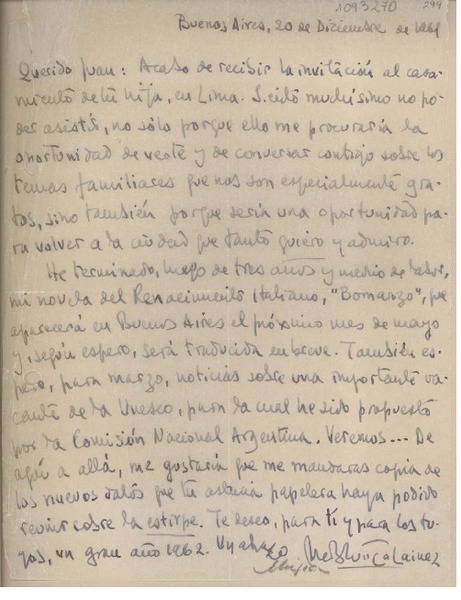 1093270
299
Buenos Aires, 20 de Diciembre de 1961
Querido Juan: Acabo de recibir la invitación al casa-
miento de tu hija, en Lima. Siento muchísimo no po-
der asistir, no sólo porque ello me procuraría la
oportunidad de verte y de conversar contigo sobre los
temas familiares que nos son especialmente gra-
tos, sino también porque sería una oportunidad pa-
ra volver a la ciudad que tanto quiero y admiro.
He terminado, luego de tres años y medio de labor,
mi novela del Renacimiento italiano, "Bomarzo", que
aparecerá en Buenos Aires el próximo mes de mayo
y, según espero, será traducida en breve. También es-
pero, para marzo, noticias sobre una importante va-
cante de la Unesco, para la cual he sido propuesto
por la Comisión Nacional Argentina. Veremos... De
aquí a allá, me gustaría que me mandaras copia de
los nuevos datos que tu papelera haya podido
reunir sobre la estirpe. Te deseo, para ti y para los tu-
yos, un gran año 1962. Un abrazo